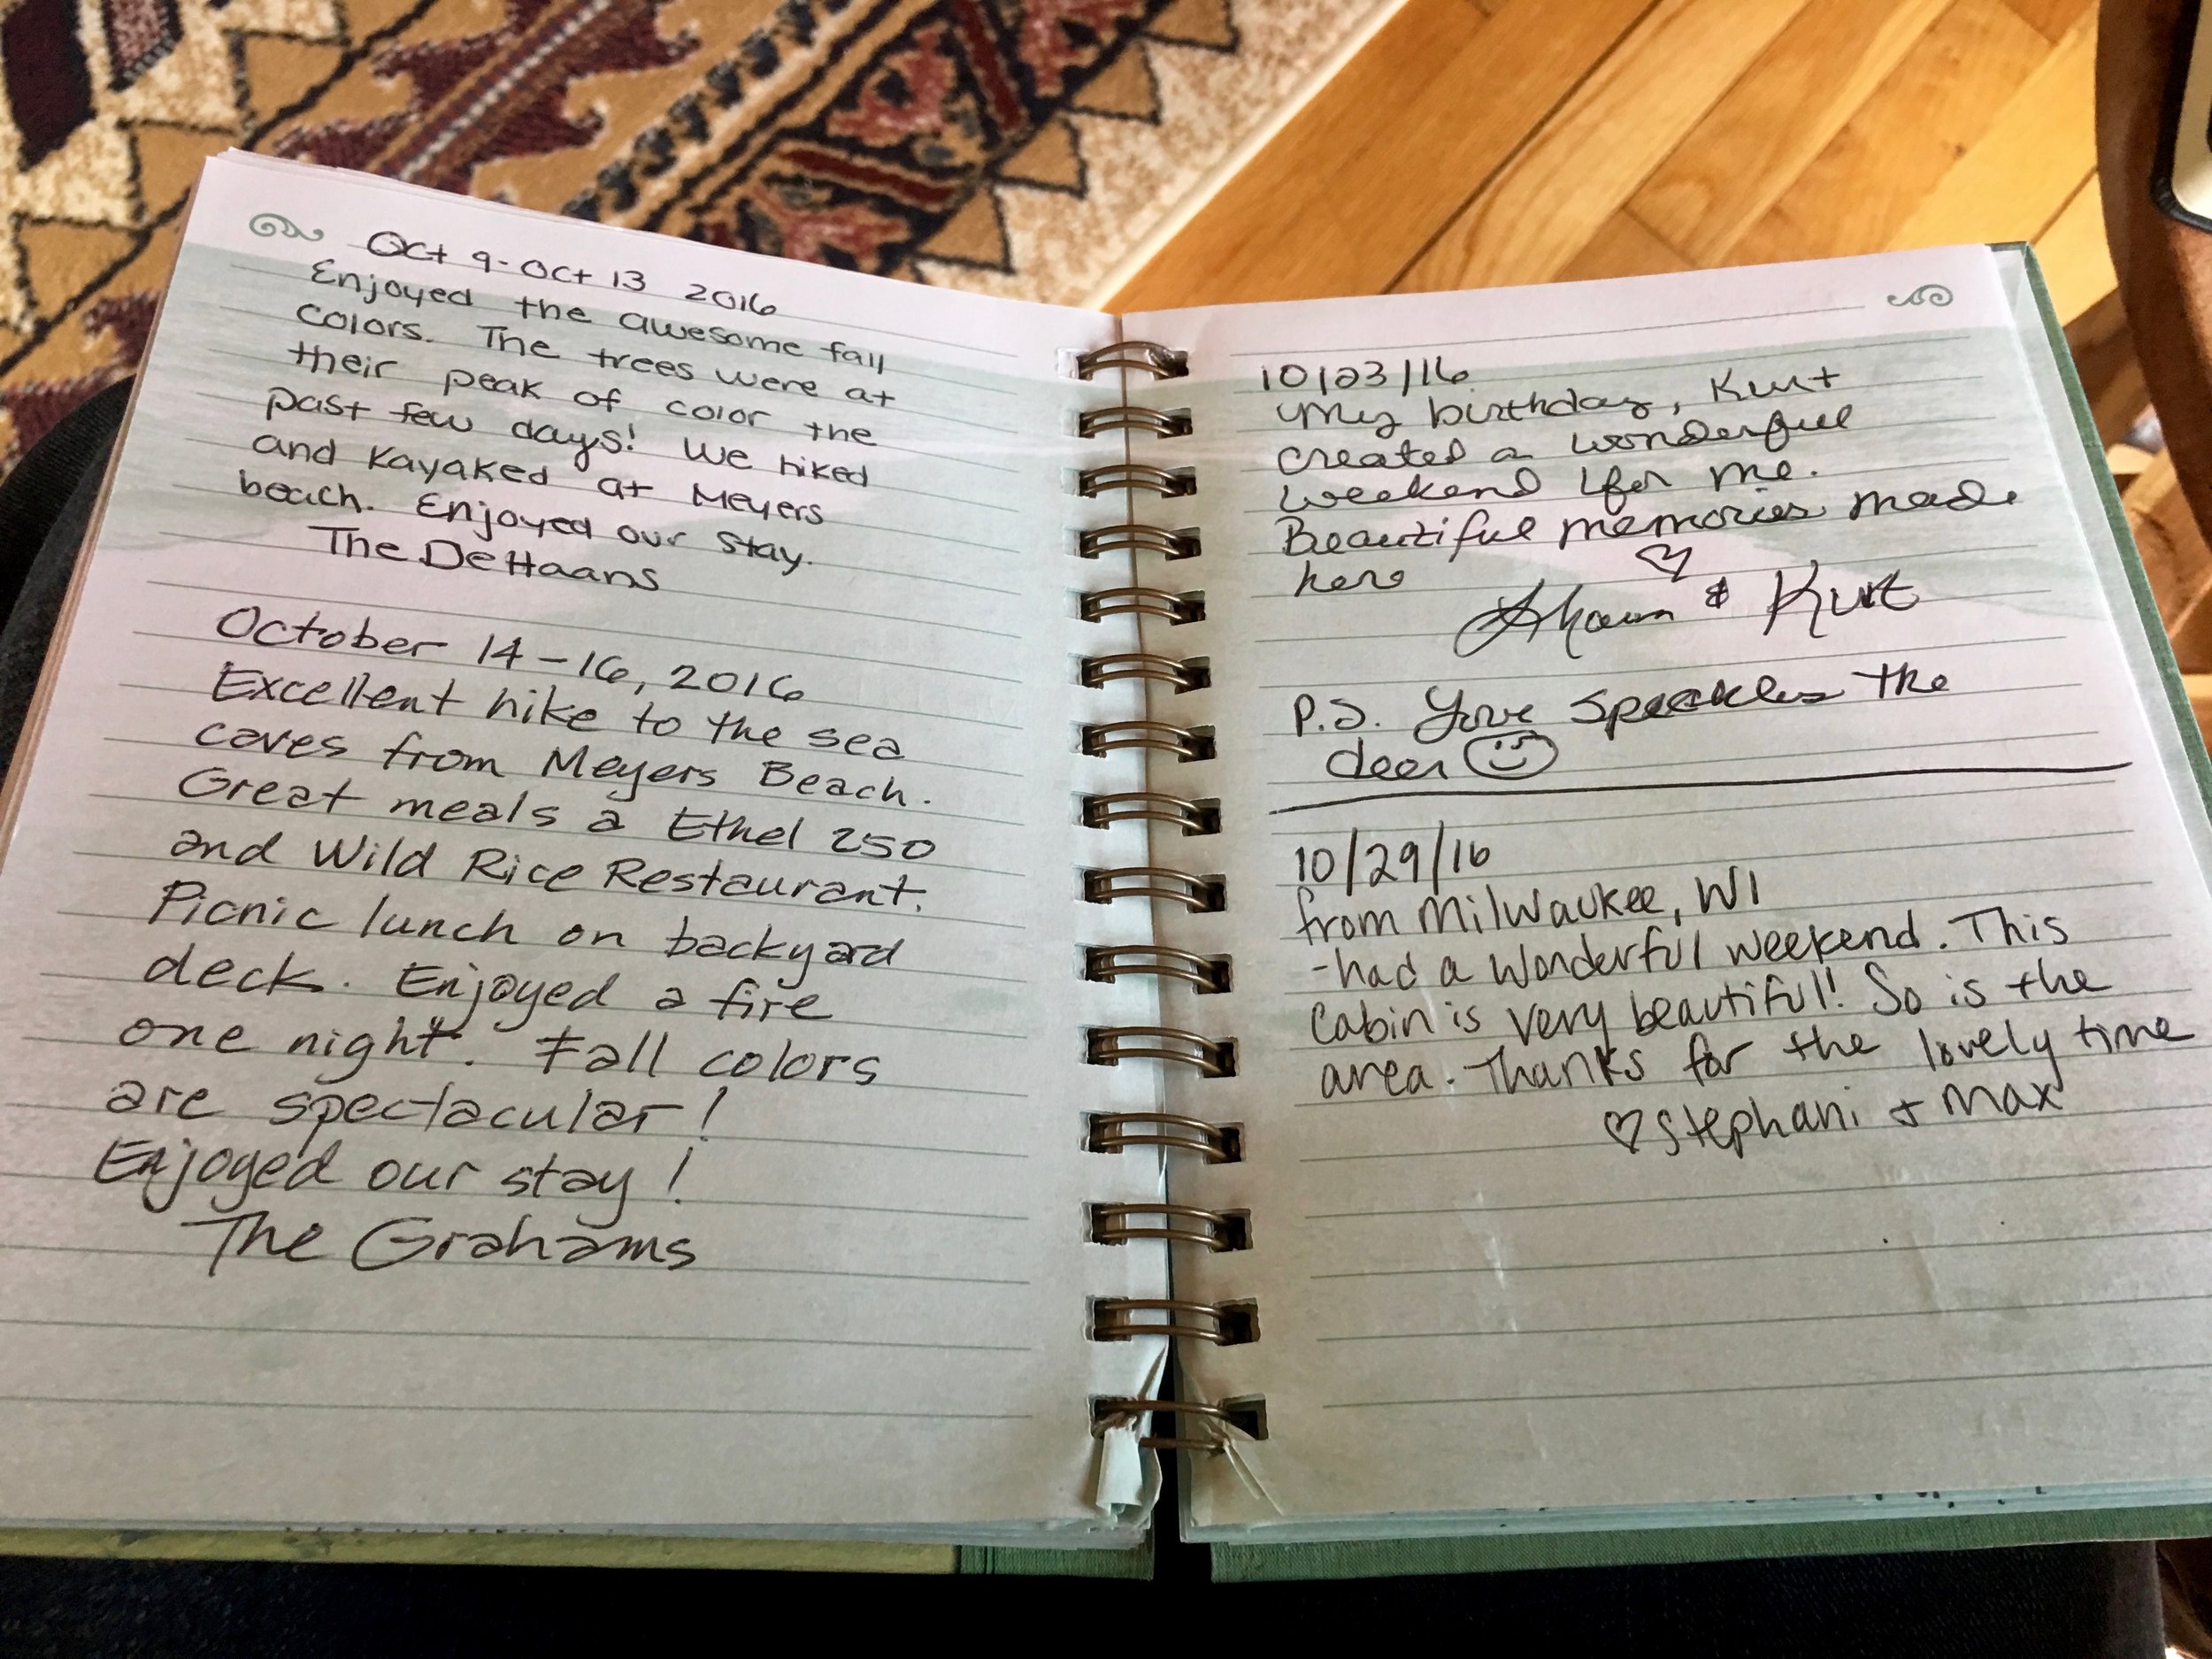 Oct 9-Oct 13 2016
Enjoyed the awesome fall
colors. The trees were at
their peak of color the
past few days! We hiked
and kayaked at Meyers
beach. Enjoyed our stay.
The DeHaans
October 14-16, 2016
Excellent hike to the sea
caves from Meyers Beach.
Great meals a Ethel 250
and Wild Rice Restaurant.
Picnic lunch on backyard
deck. Enjoyed a fire
one night. Fall colors
are spectacular!
Enjoyed our stay!
The Grahams
10/23/16
My birthday, Kurt
created a wonderful
weekend for me.
Beautiful memories made
here
♡
Shawn & Kurt
P.S. Love Speckles the
deer ☺
10/29/16
from Milwaukee, WI
-had a wonderful weekend. This
Cabin is very beautiful! So is the
area. Thanks for the lovely time
♡ Stephani + Max